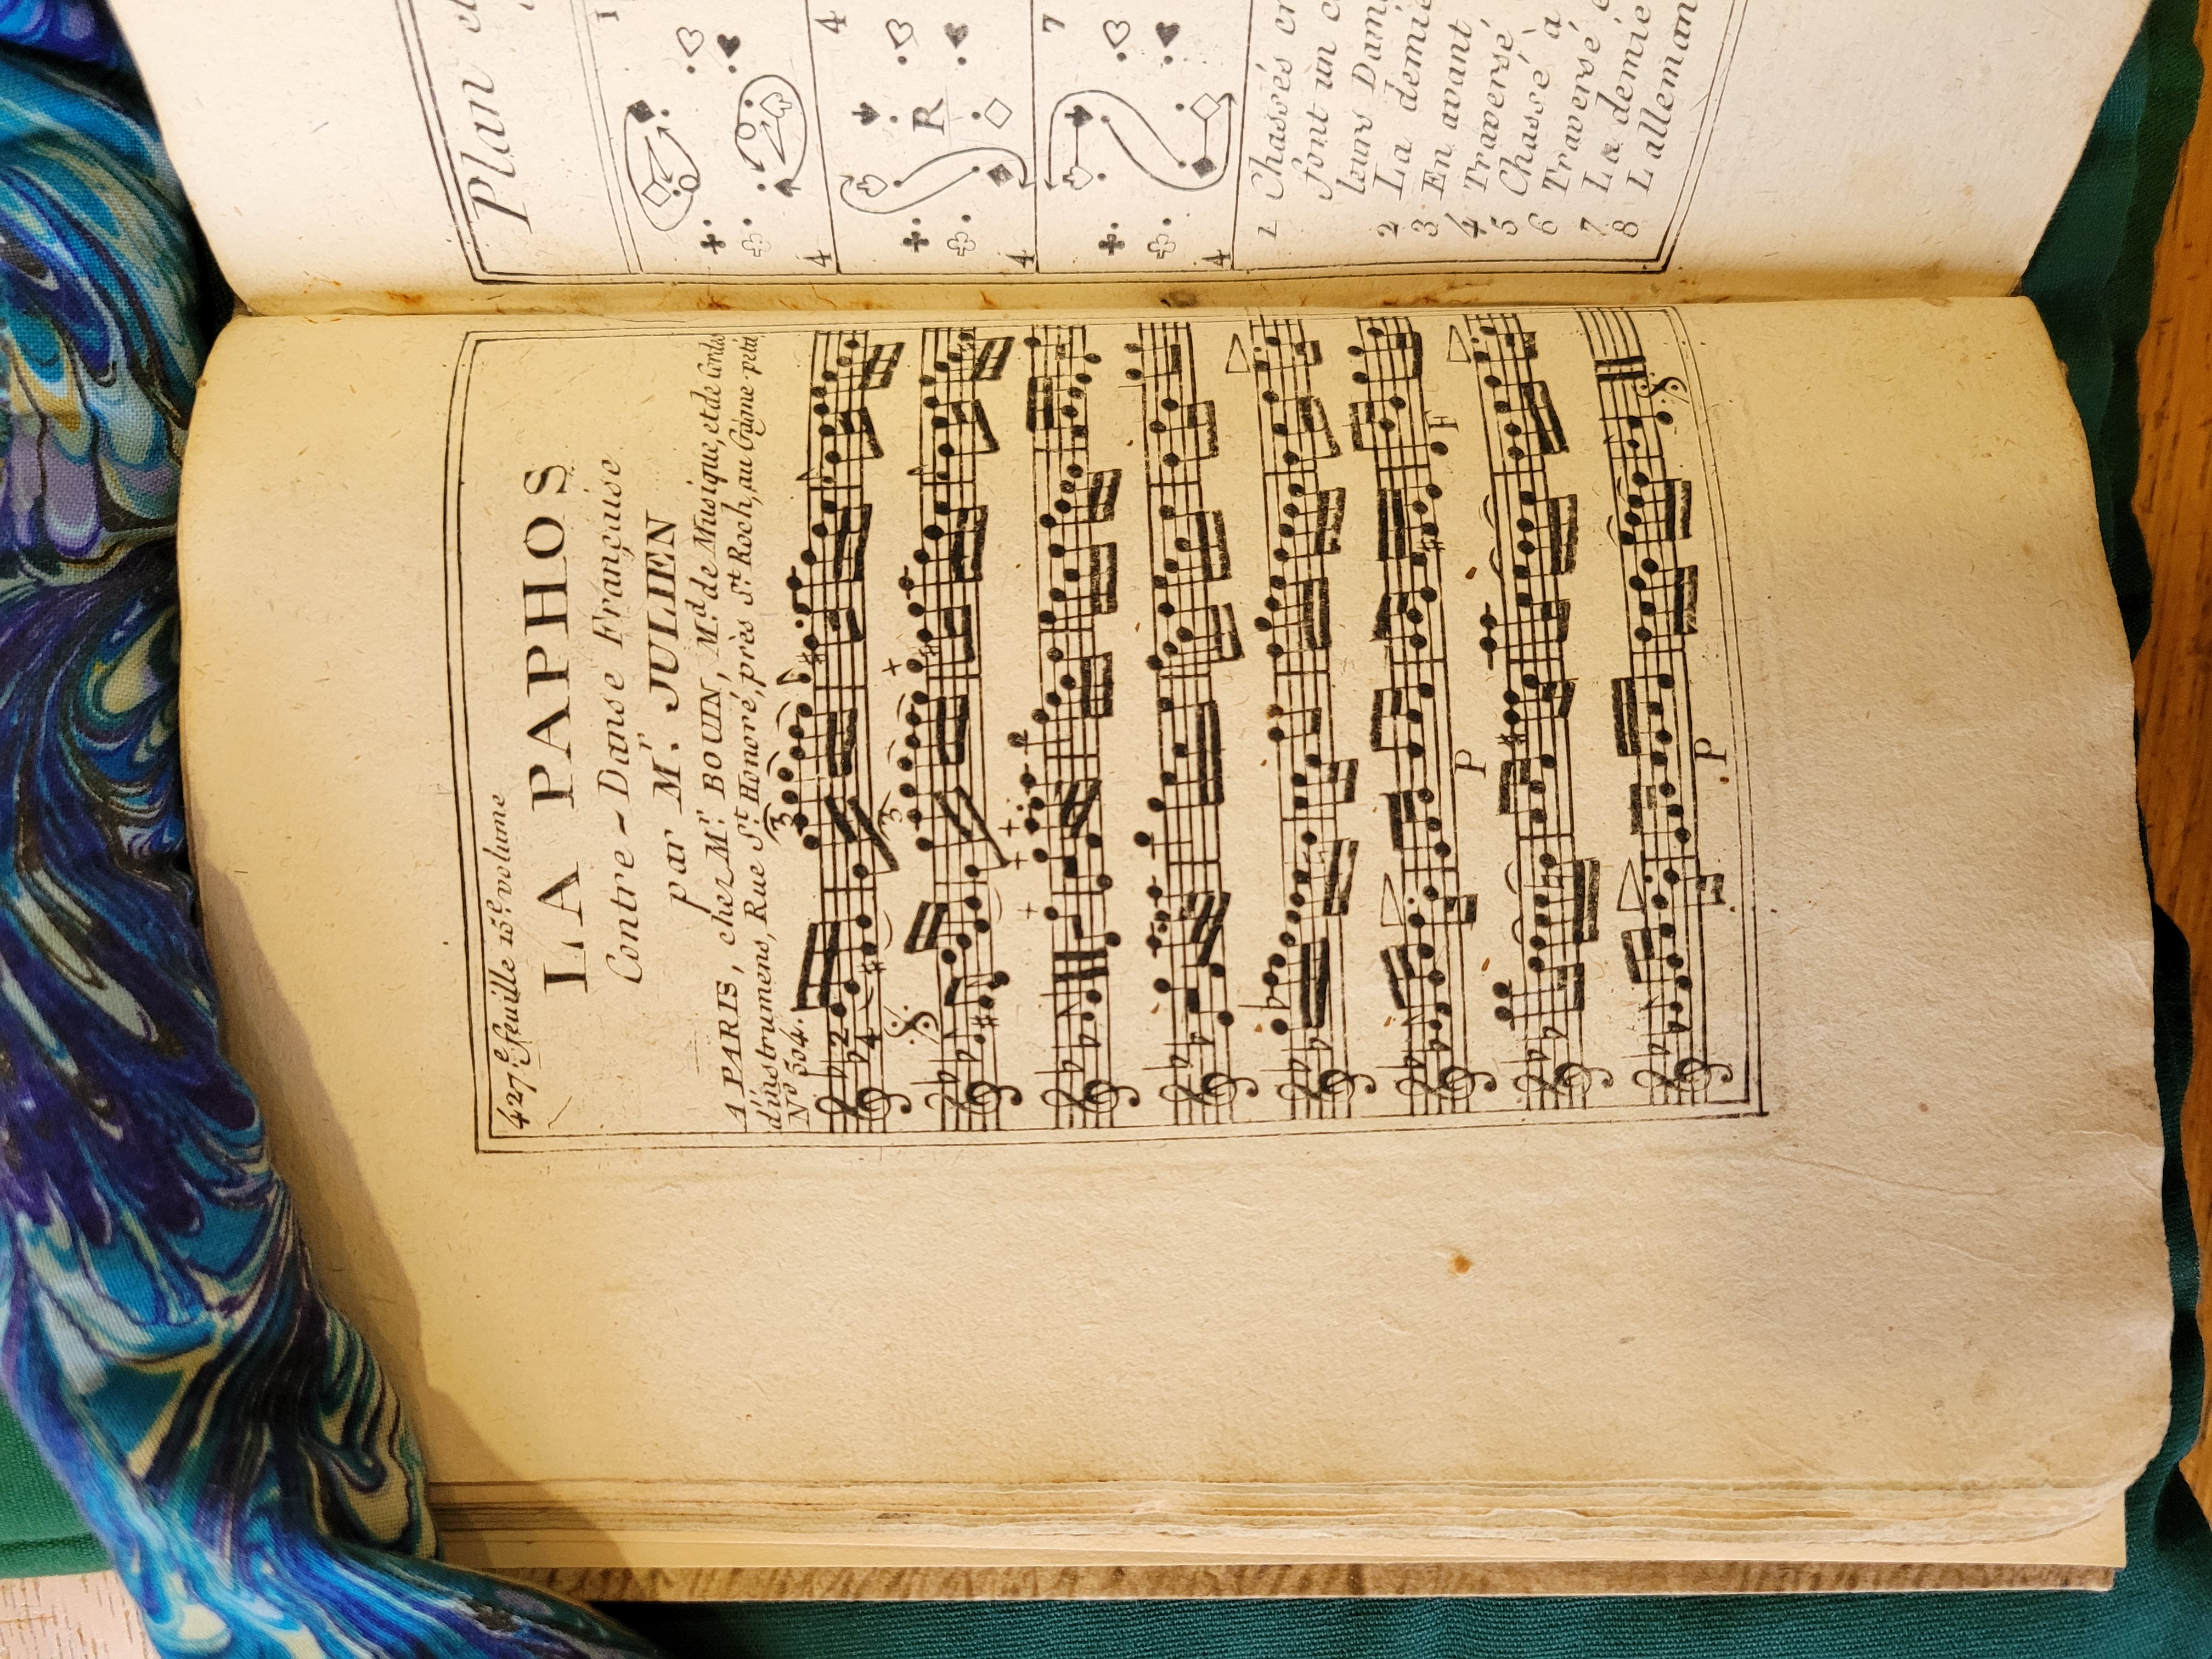 427.e feuille 15.e volume
LA PAPHOS
Contre-Danse Française
par M.r JULIEN
A PARIS, chez M.r BOUIN, M.d de Musique, et de Cordes
d'instrumens, Rue S.t Honoré, près S.t Roch, au Gagne-petit
N.o 504.
2
4
3
3
P
F
P
Plan
1
4
4
4
R
7
4
1 Chassés
font un
leurs Dam
2 La demie
3 En avant
4 Traversé
5 Chassé à
6 Traversé
7 La demie
8 L'alleman